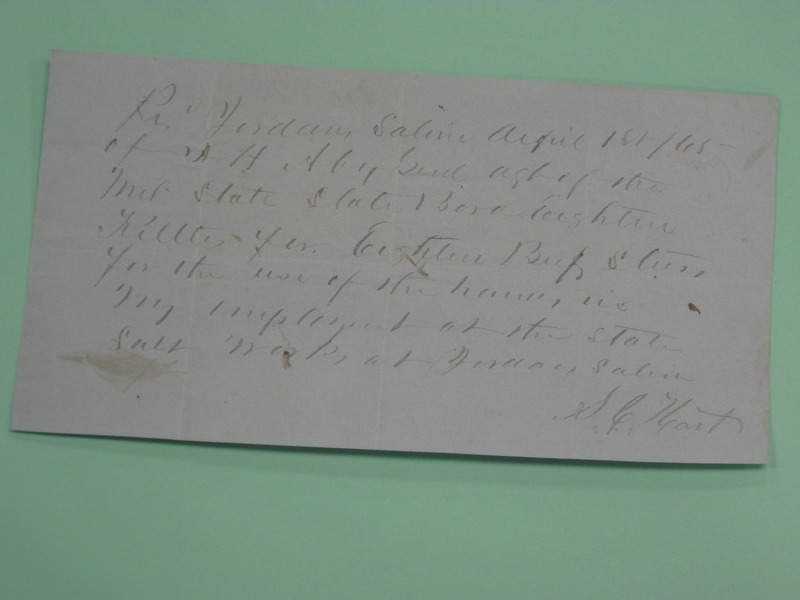 Rc.d Jordans Saline April 1st/65
of W H Aby Genl agt of the
State State Bord Eighteen
Kettles for Eighteen Beef Steers
for the use of the hands in
my imployment at the State
Salt Works at Jordans Saline
S. C. Hart